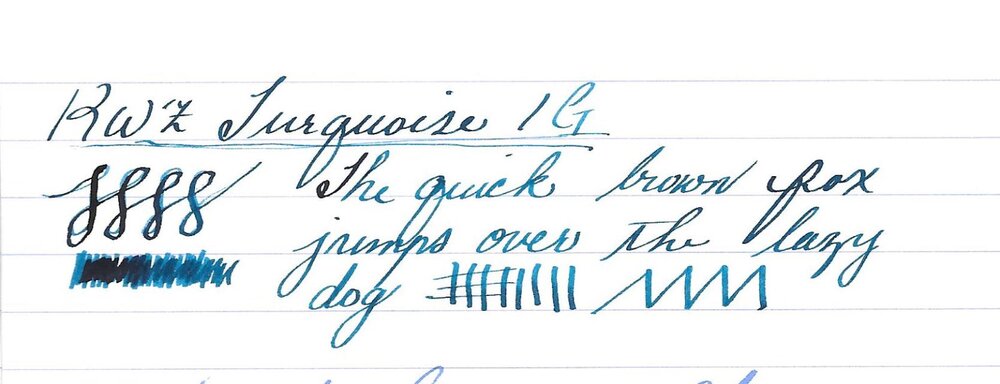 KWZ Turquoise IG
The quick brown fox
jumps over the lazy
dog